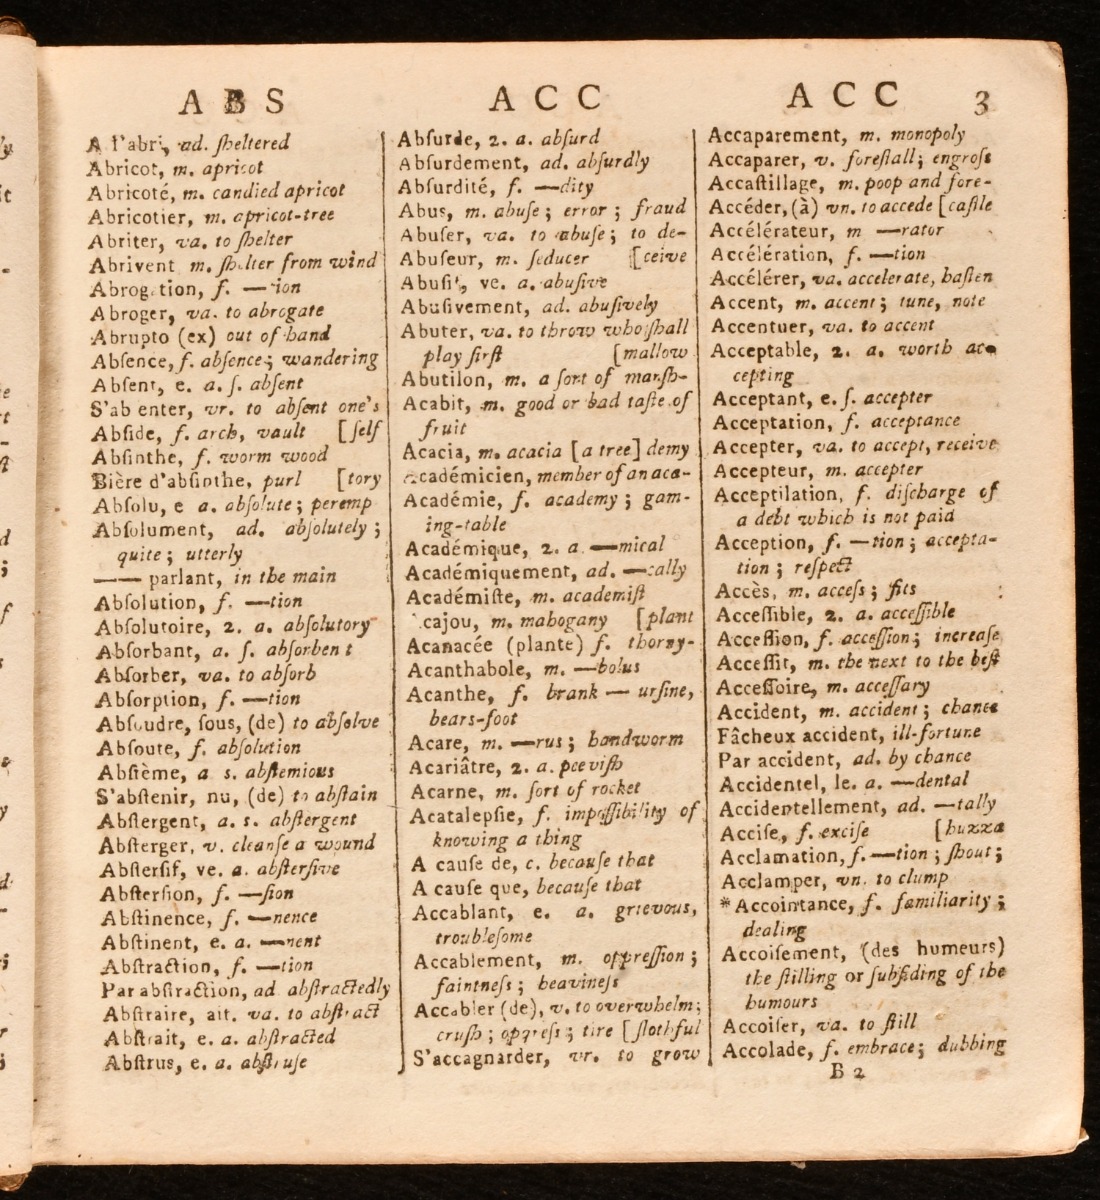 ABS
A l'abri, ad. ſheltered
Abricot, m. apricot
Abricoté, m. candied apricot
Abricotier, m. apricot-tree
Abriter, va. to ſhelter
Abrivent m. ſhelter from wind
Abrogation, f. —tion
Abroger, va. to abrogate
Abrupto (ex) out of hand
Abſence, f. abſence; wandering
Abſent, e. a. ſ. abſent
S'abſenter, vr. to abſent one's
Abſide, f. arch, vault [ſelf
Abſinthe, f. worm wood
Bière d'abſinthe, purl [tory
Abſolu, e a. abſolute; peremp
Abſolument, ad. abſolutely;
quite; utterly
—— parlant, in the main
Abſolution, f. —tion
Abſolutoire, 2. a. abſolutory
Abſorbant, a. ſ. abſorbent
Abſorber, va. to abſorb
Abſorption, f. —tion
Abſoudre, ſous, (de) to abſolve
Abſoute, f. abſolution
Abſtème, a s. abſtemious
S'abſtenir, nu, (de) to abſtain
Abſtergent, a. s. abſtergent
Abſterger, v. cleanſe a wound
Abſterſif, ve. a. abſterſive
Abſterſion, f. —ſion
Abſtinence, f. —nence
Abſtinent, e. a. —nent
Abſtraction, f. —tion
Par abſtraction, ad abſtractedly
Abſtraire, ait. va. to abſtract
Abſtrait, e. a. abſtracted
Abſtrus, e. a. abſtruſe
ACC
Abſurde, 2. a. abſurd
Abſurdement, ad. abſurdly
Abſurdité, f. —dity
Abus, m. abuſe; error; fraud
Abuſer, va. to abuſe; to de-
Abuſeur, m. ſeducer [ceive
Abuſif, ve. a. abuſive
Abuſivement, ad. abuſively
Abuter, va. to throw who ſhall
play firſt [mallow
Abutilon, m. a ſort of marſh-
Acabit, m. good or bad taſte of
fruit
Acacia, m. acacia [a tree] demy
Académicien, member of an aca-
Académie, f. academy; gam-
ing-table
Académique, 2. a —mical
Académiquement, ad. —cally
Académiſte, m. academiſt
cajou, m. mahogany [plant
Acanacée (plante) f. thorny-
Acanthabole, m. —bolus
Acanthe, f. brank — urſine,
bears-foot
Acare, m. —rus; handworm
Acariâtre, 2. a. peeviſh
Acarne, m. ſort of rocket
Acatalepſie, f. impoſſibility of
knowing a thing
A cauſe de, c. becauſe that
A cauſe que, becauſe that
Accablant, e. a. grievous,
troubleſome
Accablement, m. oppreſſion;
faintneſs; heavineſs
Accabler (de), v. to overwhelm;
cruſh; oppreſs; tire [ſlothful
S'accagnarder, vr. to grow
ACC 3
Accaparement, m. monopoly
Accaparer, v. foreſtall; engroſs
Accaſtillage, m. poop and fore-
Accéder, (à) vn. to accede [caſtle
Accélérateur, m —rator
Accélération, f. —tion
Accélérer, va. accelerate, haſten
Accent, m. accent; tune, note
Accentuer, va. to accent
Acceptable, 2. a. worth ac-
cepting
Acceptant, e. ſ. accepter
Acceptation, f. acceptance
Accepter, va. to accept, receive
Accepteur, m. accepter
Acceptilation, f. diſcharge of
a debt which is not paid
Acception, f. —tion; accepta-
tion; reſpect
Accès, m. acceſs; fits
Acceſſible, 2. a. acceſſible
Acceſſion, f. acceſſion; increaſe
Acceſſit, m. the next to the beſt
Acceſſoire, m. acceſſary
Accident, m. accident; chance
Fâcheux accident, ill-fortune
Par accident, ad. by chance
Accidentel, le. a. —dental
Accidentellement, ad. —tally
Acciſe, f. exciſe [huzza
Acclamation, f. —tion; ſhout;
Acclamper, vn. to clump
*Accointance, f. familiarity;
dealing
Accoiſement, (des humeurs)
the ſtilling or ſubſiding of the
humours
Accoiſer, va. to ſtill
Accolade, f. embrace; dubbing
B 2